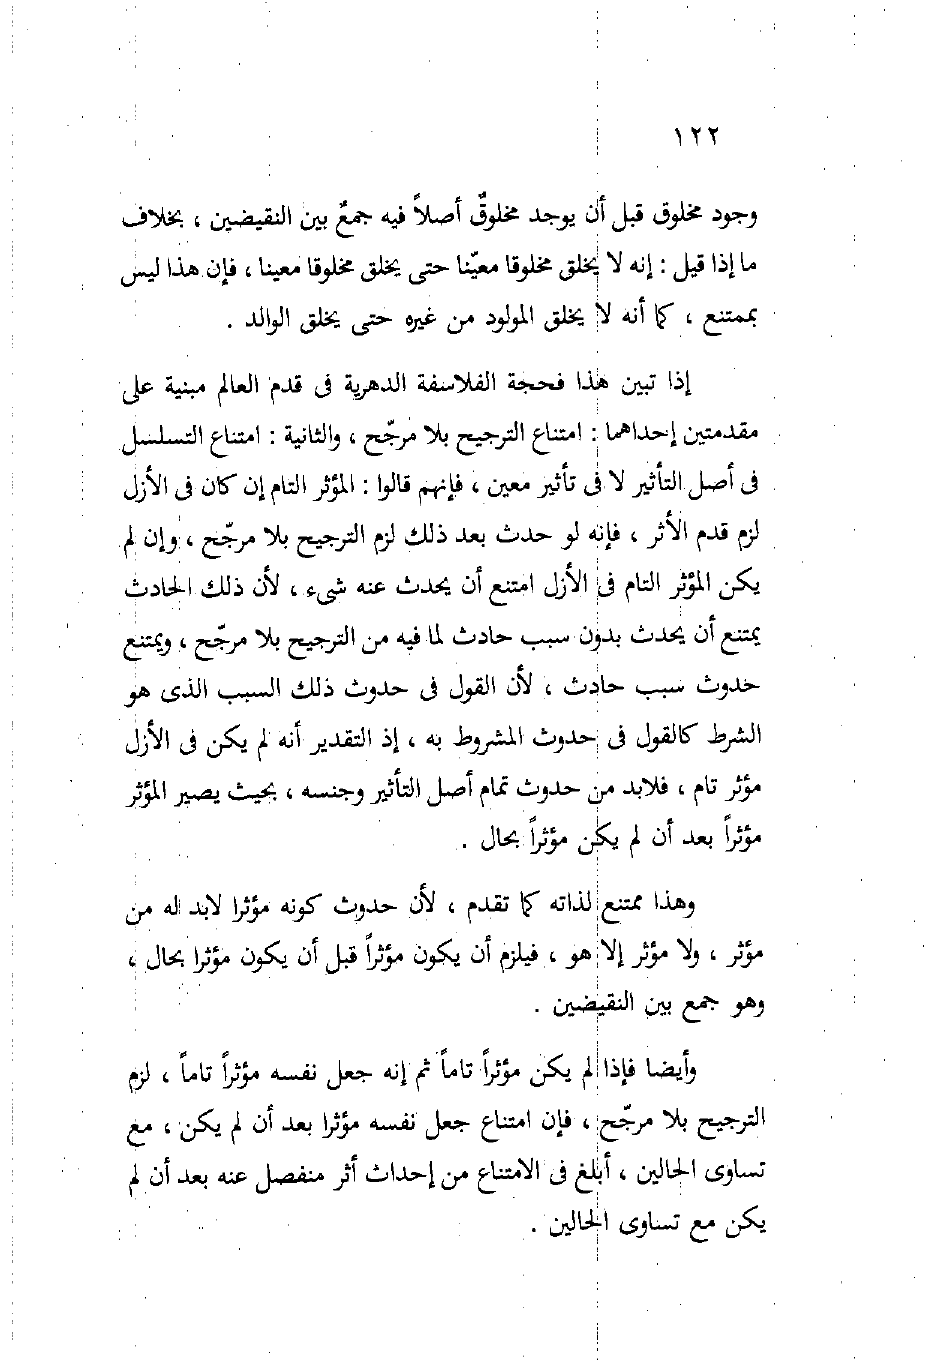 ١٢٢
وجود مخلوق قبل أن يوجد مخلوقٌ أصلاً فيه جمعٌ بين النقيضين ، بخلاف
ما إذا قيل : إنه لا يخلق مخلوقا معيّنا حتى يخلق مخلوقا معينا ، فإن هذا ليس
بممتنع ، كما أنه لا يخلق المولود من غيره حتى يخلق الوالد .
إذا تبين هذا فحجة الفلاسفة الدهرية فى قدم العالم مبنية على
مقدمتين إحداهما : امتناع الترجيح بلا مرجّح ، والثانية : امتناع التسلسل
فى أصل التأثير لا فى تأثير معين ، فإنهم قالوا : المؤثر التام إن كان فى الأزل
لزم قدم الأثر ، فإنه لو حدث بعد ذلك لزم الترجيح بلا مرجّح ، وإن لم
يكن المؤثر التام فى الأزل امتنع أن يحدث عنه شىء ، لأن ذلك الحادث
يمتنع أن يحدث بدون سبب حادث لما فيه من الترجيح بلا مرجّح ، ويمتنع
حدوث سبب حادث ، لأن القول فى حدوث ذلك السبب الذى هو
الشرط كالقول فى حدوث المشروط به ، إذ التقدير أنه لم يكن فى الأزل
مؤثر تام ، فلابد من حدوث تمام أصل التأثير وجنسه ، بحيث يصير المؤثر
مؤثراً بعد أن لم يكن مؤثراً بحال .
وهذا ممتنع لذاته كما تقدم ، لأن حدوث كونه مؤثرا لابد له من
مؤثر ، ولا مؤثر إلا هو ، فيلزم أن يكون مؤثراً قبل أن يكون مؤثرا بحال ،
وهو جمع بين النقيضين .
وأيضا فإذا لم يكن مؤثراً تاماً ثم إنه جعل نفسه مؤثراً تاماً ، لزم
الترجيح بلا مرجّح ، فإن امتناع جعل نفسه مؤثرا بعد أن لم يكن ، مع
تساوى الحالين ، أبلغ فى الامتناع من إحداث أثر منفصل عنه بعد أن لم
يكن مع تساوى الحالين .